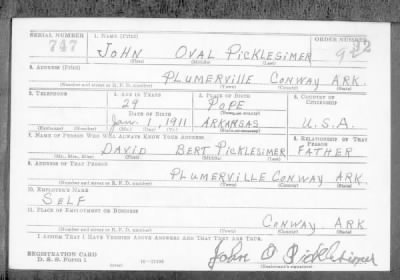 SERIAL NUMBER 1. NAME (Print) ORDER NUMBER
747 JOHN OVAL PICKLESIMER
(First) (Middle) (Last)
2. ADDRESS (Print)
PLUMERVILLE CONWAY ARK.
(Number and street or R. F. D. number) (Town) (County) (State)
3. TELEPHONE 4. AGE IN YEARS 5. PLACE OF BIRTH 6. COUNTRY OF CITIZENSHIP
29 POPE
DATE OF BIRTH (Town or county)
Jan. 1, 1911 ARKANSAS U.S.A.
(Exchange) (Number) (Mo.) (Day) (Yr.) (State or country)
7. NAME OF PERSON WHO WILL ALWAYS KNOW YOUR ADDRESS 8. RELATIONSHIP OF THAT PERSON
DAVID BERT PICKLESIMER FATHER
(Mr., Mrs., Miss) (First) (Middle) (Last)
9. ADDRESS OF THAT PERSON
PLUMERVILLE CONWAY ARK.
(Number and street or R. F. D. number) (Town) (County) (State)
10. EMPLOYER'S NAME
SELF
11. PLACE OF EMPLOYMENT OR BUSINESS
CONWAY ARK
(Number and street or R. F. D. number) (Town) (County) (State)
I AFFIRM THAT I HAVE VERIFIED ABOVE ANSWERS AND THAT THEY ARE TRUE.
REGISTRATION CARD
D. S. S. Form 1 John O Picklesimer
(Registrant's signature)